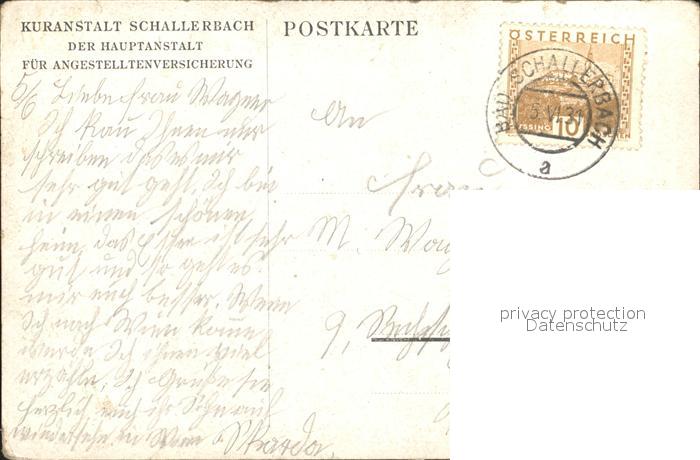 KURANSTALT SCHALLERBACH
DER HAUPTANSTALT
FÜR ANGESTELLTENVERSICHERUNG
POSTKARTE
ÖSTERREICH
10
BAD SCHALLERBACH
5.VI.31
a
5/6 Liebe Frau Wagner
Ich kan Ihnen nur
schreiben das es mir
sehr gut geht, Ich bin
in einen schönen
heim, das Essen ist sehr
gut und so geht es
mir auch besser, Wenn
Ich nach Wien kome
werde Ich ihnen viel
erzählen, Ich Grüße sie
herzlich auch ihr Sohn auf
wiedersehn in Wien Skarda.
An
Frau
M. Wag
9,
privacy protection
Datenschutz